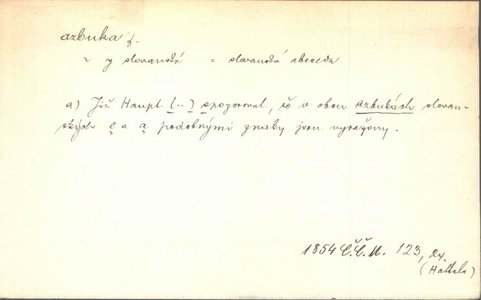 azbuka f.
~ y slovanský = slovanská abeceda
a) Již Haupt [..] spozoroval, že v obou azbukách slovan-
ských e a a podobnými znaky jsou vyraženy.
1854 Č.Č.M. 123,
(Hattala)